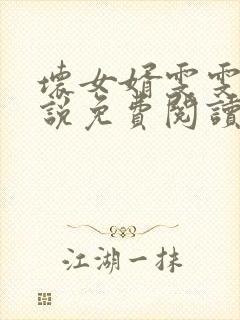 壞女婿雯雯
說免費閱讀
江湖一抹